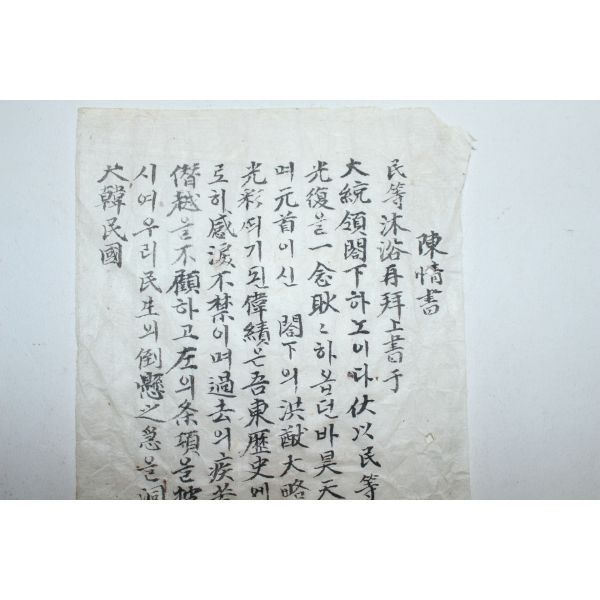 陳情書
民等沐浴再拜上書于
大統領閣下하노이다伏以民等
光復을一念耿〻하옵던바昊天
며元首이신 閣下의洪猷大略
光彩되기된偉績은吾東歷史에
로히感淚不禁이며過去의疾苦
僭越을不顧하고左의条項을披
시여우리民生의倒懸之急을洞
大韓民國